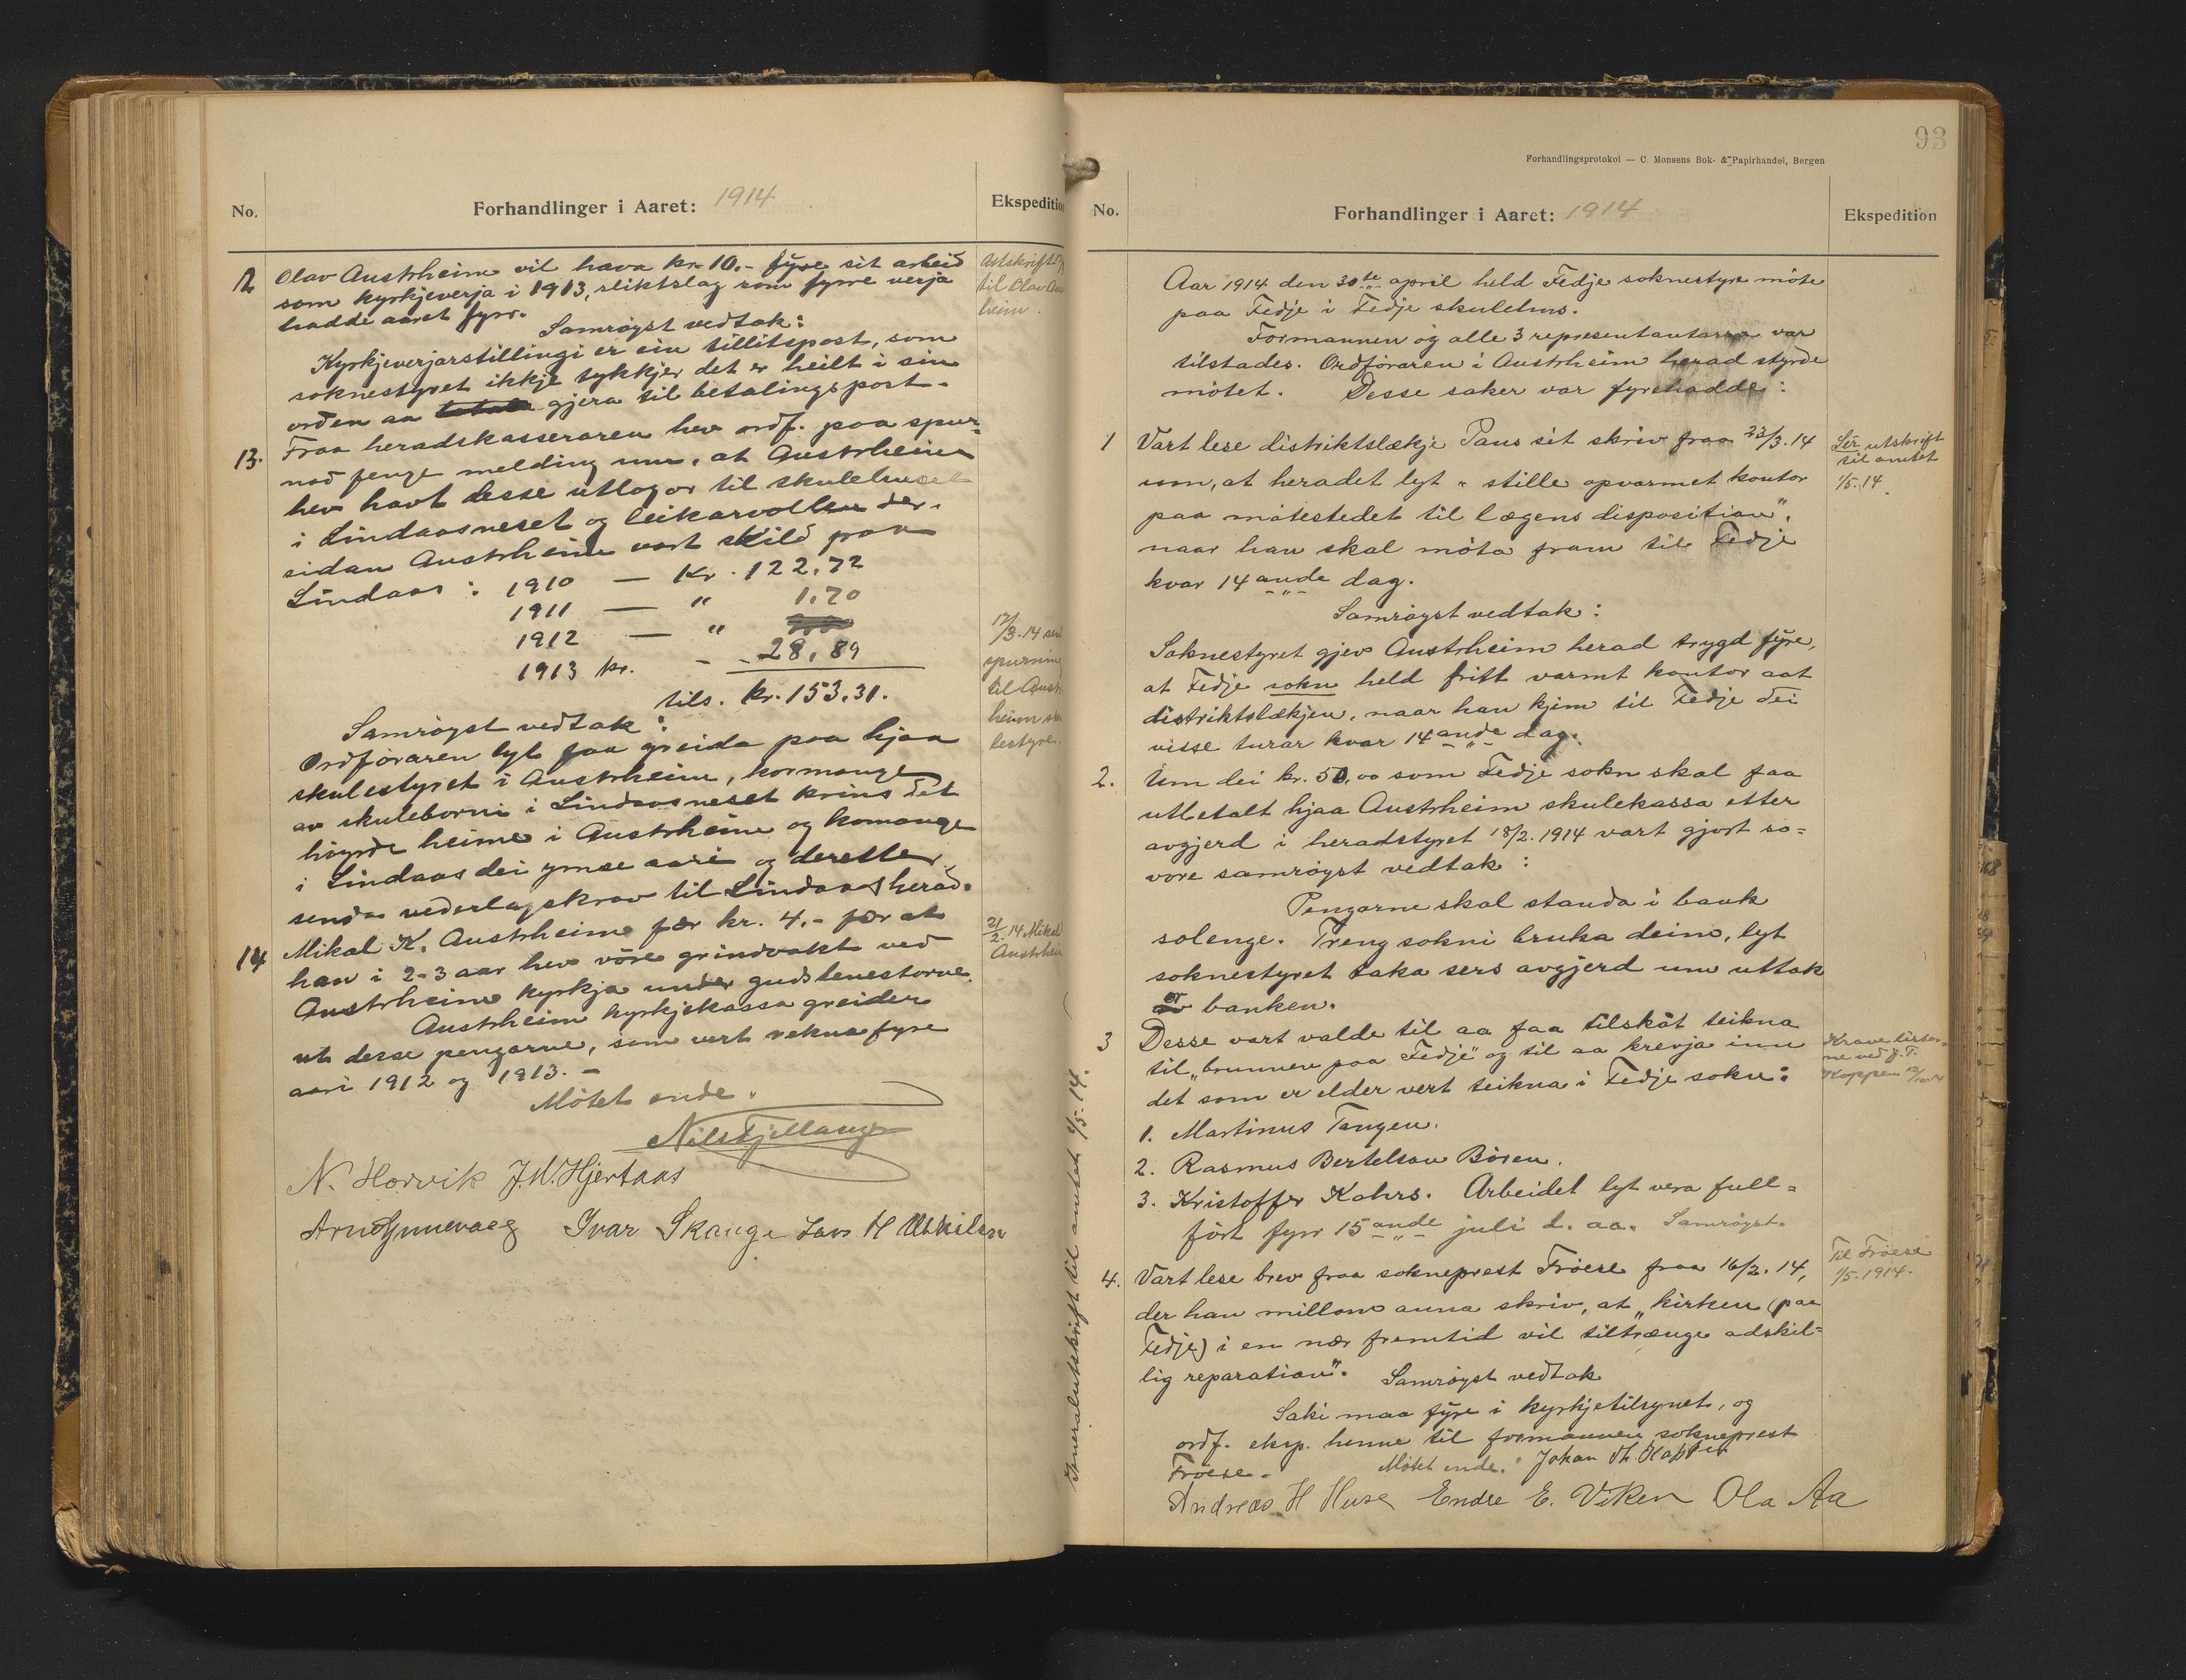 No.
Forhandlinger i Aaret: 1914
Ekspedition
12
Olav Austrheim vil hava kr. 10.- fyre sit arbeid
som kyrkjeverja i 1913, sliktslag som fyrre verja
hadde aaret fyrr.
Samrøyst vedtak:
Kyrkjeverjarstillingi er ein tillitspost, som
soknestyret ikkje tykkjer det er heilt i sin
orden aa gjera til betalingspost.
Avskrift
til Olav Au
heim.
13.
Fraa heradskasseraren hev ordf. paa spur-
nad fenge melding um, at Austrheim
hev havt desse utlogor til skulehuset
i Lindaasneset og leikarvollen der,
sidan Austrheim vart skild fraa
Lindaas: 1910 — Kr. 122,72
1911 — " 1,70
1912 — "
1913 kr. - 28,89
tils. kr. 153,31.
Samrøyst vedtak:
Ordføraren lyt faa greida paa hjaa
skulestyret i Austrheim, kormange
av skuleborni i Lindaasneset krins det
høyrde heime i Austrheim og komange
i Lindaas dei ymse aari og deretter
senda vederlagskrav til Lindaas herad.
12/3-14 send
spurning
til Austr-
heim sku
lestyre.
14
Mikal K. Austrheim fær kr. 4.- for at
han i 2-3 aar hev vore grindvakt ved
Austrheim kyrkja under gudstenestorne.
Austrheim kyrkjekassa greider
ut desse pengarne, som vert rekna fyre
aari 1912 og 1913. -
21/2. 14 Mikal
Austrheim
Møtet ende.
Nils Fjellanger
N. Horvik J. W. Hjertaas
Arne Synnevaag Ivar Skauge Lars H Utkilen
93
Forhandlingsprotokol — C. Monsens Bok- & Papirhandel, Bergen
No.
Forhandlinger i Aaret: 1914
Ekspedition
Aar 1914 den 30te april held Fedje soknestyre møte
paa Fedje i Fedje skulehus.
Formannen og alle 3 representantarna var
tilstades. Ordføraren i Austrheim herad styrde
møtet. Desse saker var fyrehadde:
1
Vart lese distriktslækje Paus sit skriv fraa 23/3. 14
um, at heradet lyt "stille opvarmet kontor
paa møtestedet til lægens disposition",
naar han skal møta fram til Fedje
kvar 14ande dag.
Samrøyst vedtak:
Soknestyret gjev Austrheim herad trygd fyre,
at Fedje sokn held fritt varmt kontor aat
distriktslækjen, naar han kjem til Fedje dei
visse turar kvar 14ande dag.
Sér utskrift
til amtet
1/5. 14.
2.
Um dei kr. 50,00 som Fedje sokn skal faa
utbetalt hjaa Austrheim skulekassa etter
avgjerd i heradstyret 18/2. 1914 vart gjort so-
vore samrøyst vedtak:
Pengarne skal standa i bank
solenge. Treng sokni bruka deim, lyt
soknestyret taka sers avgjerd um uttak
or banken.
3
Desse vart valde til aa faa tilskot teikna
til "brunnen paa Fedje" og til aa krevja inn
det som er elder vert teikna i Fedje sokn:
1. Martinus Tangen.
2. Rasmus Bertelson Børen.
3. Kristoffer Kahrs. Arbeidet lyt vera full-
ført fyrr 15ande juli d. aa. Samrøyst.
Krave lister-
ne ved J. T.
Koppen
4.
Vart lese brev fraa sokneprest Frøese fraa 16/2. 14,
der han millom anna skriv, at "kirken (paa
Fedje) i en nær fremtid vil tiltrænge adskil-
lig reparation". Samrøyst vedtak
Saki maa fyre i kyrkjetilsynet, og
ordf. eksp. henne til formannen sokneprest
Frøese. Møtet ende. Johan Th. Koppen
Til Frøese
1/5. 1914.
Andreas H Husa Endre E. Viken Ola Aa
Generalutskrift til amtet 1/5. 14.